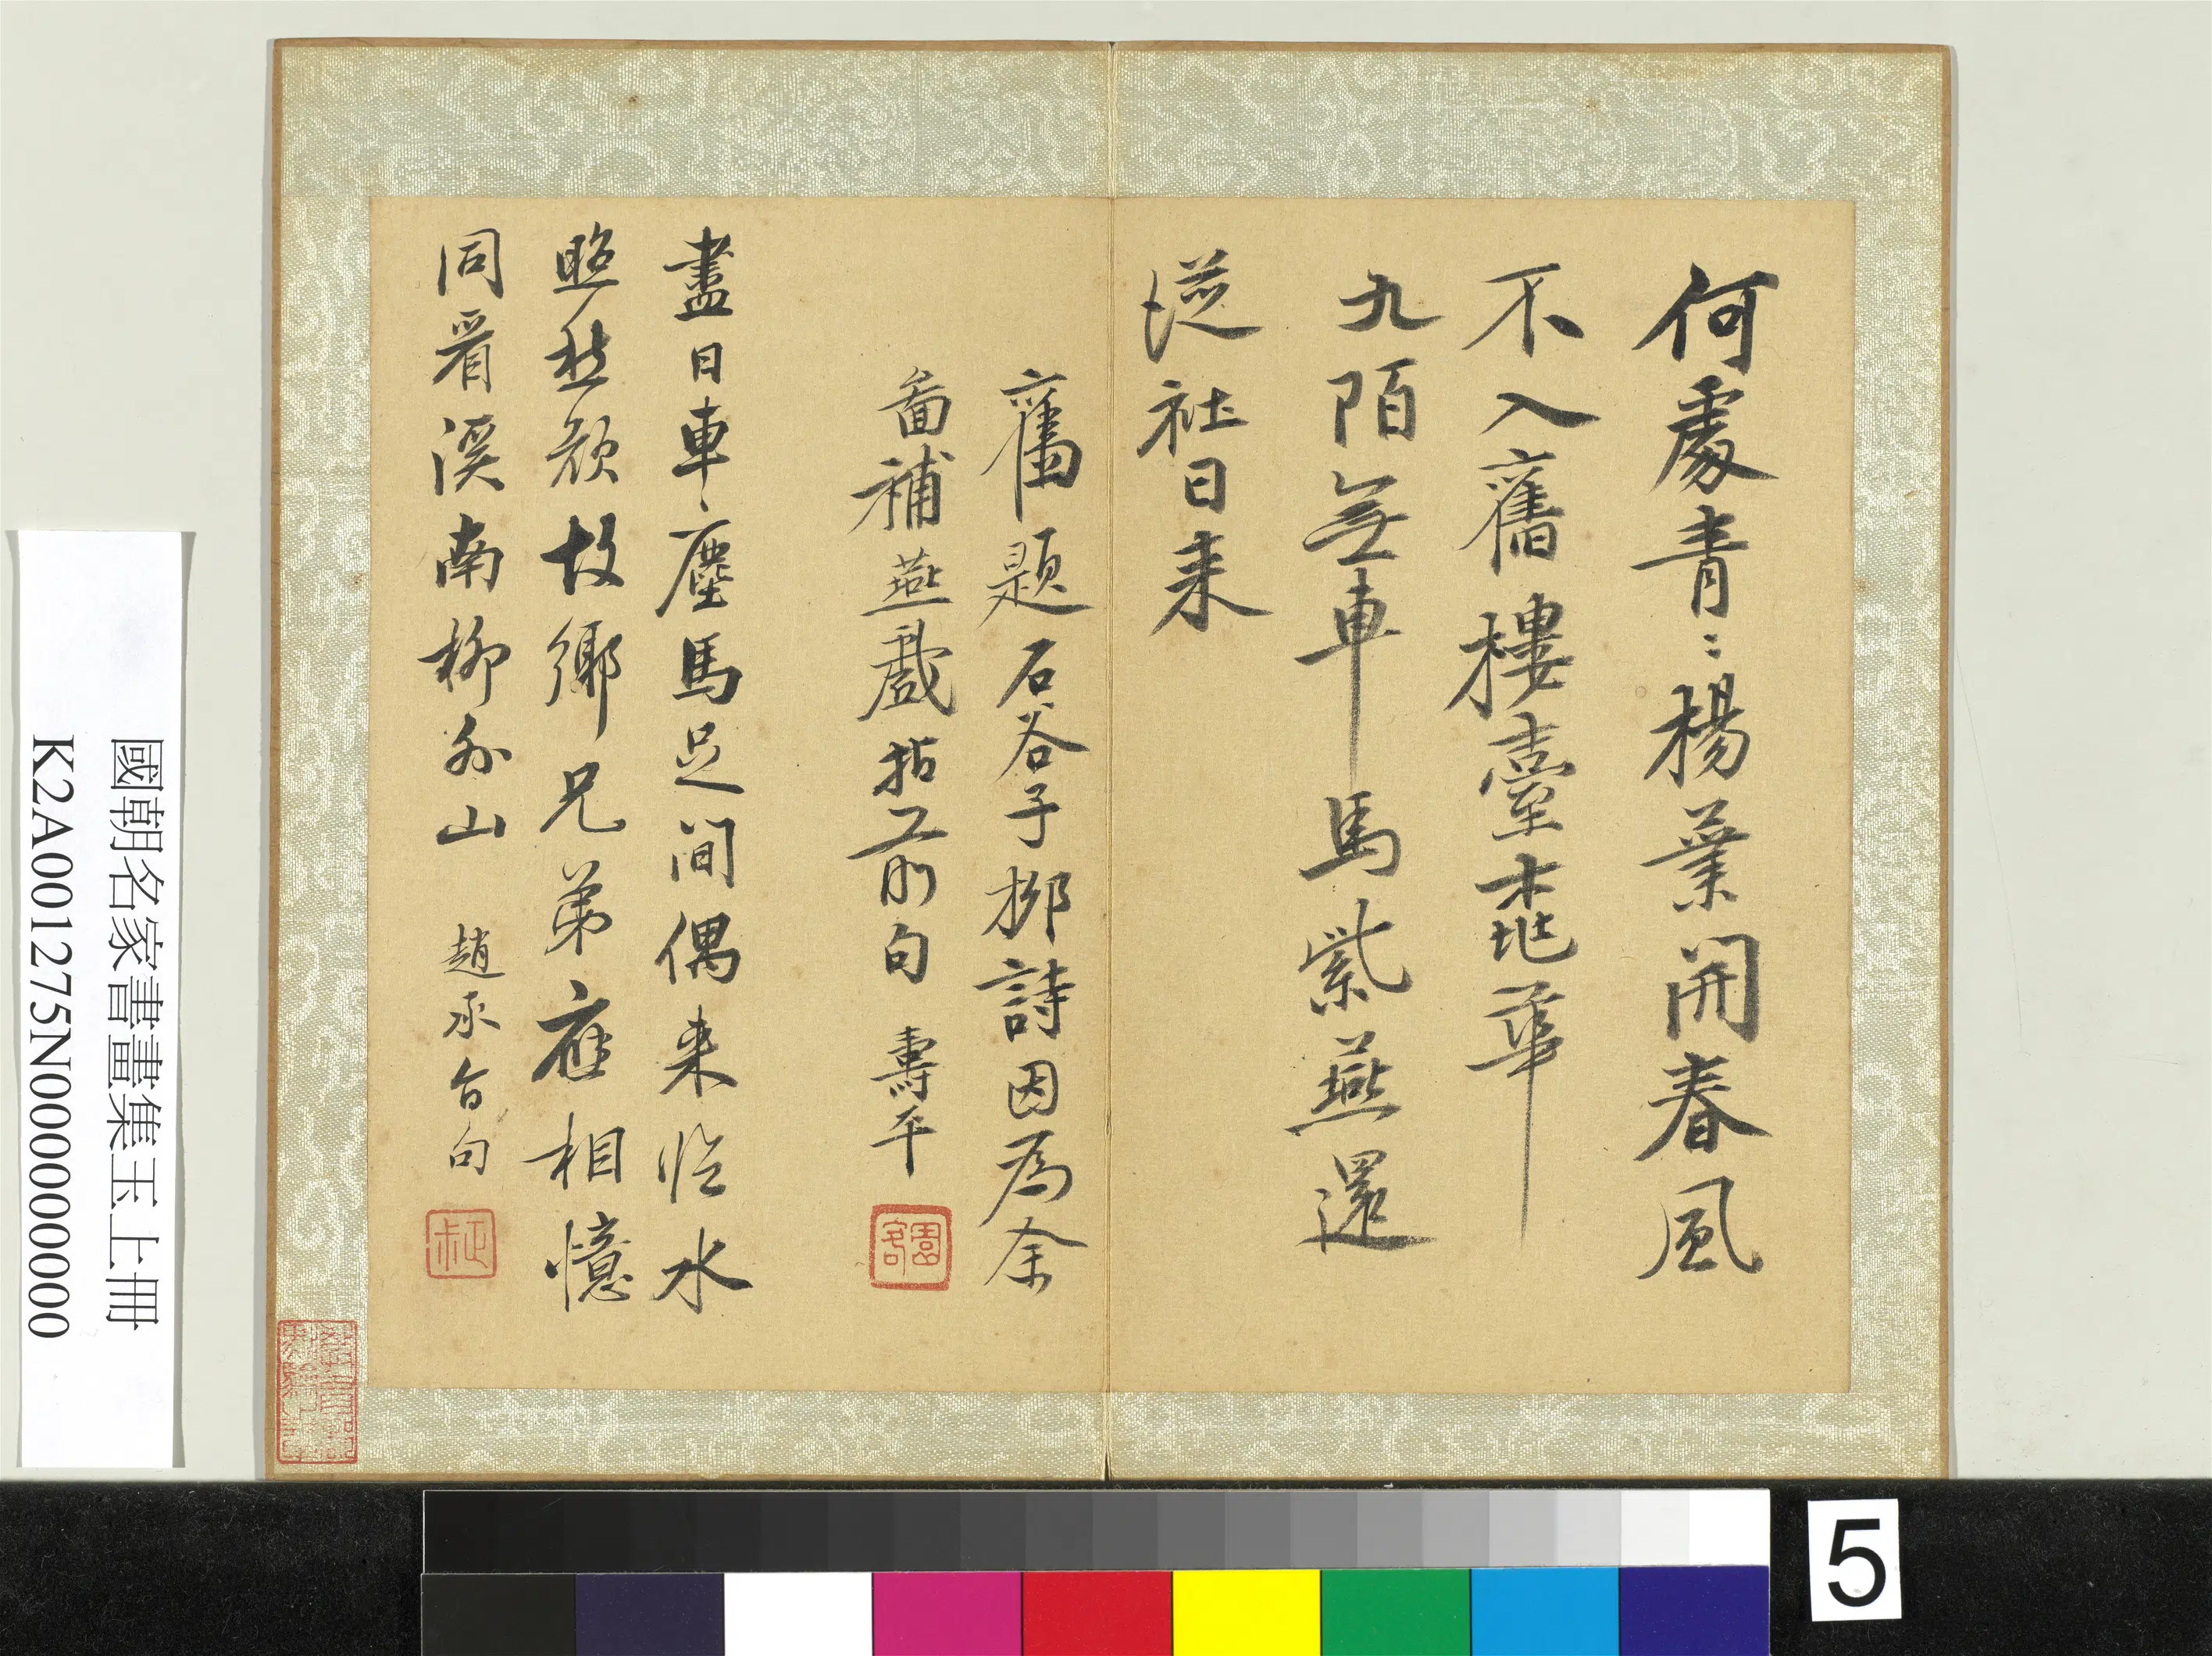 何處青〻楊葉開春風
不入舊樓臺華
九陌無車馬紫燕還
從社日来
舊題石谷子柳詩因為余
啚補燕戲拈前句 壽平
園客
盡日車塵馬足間偶来臨水
照愁顏故鄉兄弟應相憶
同看溪南柳外山 趙承旨句
正叔
國朝名家書畫集玉上冊
K2A001275N000000000
5